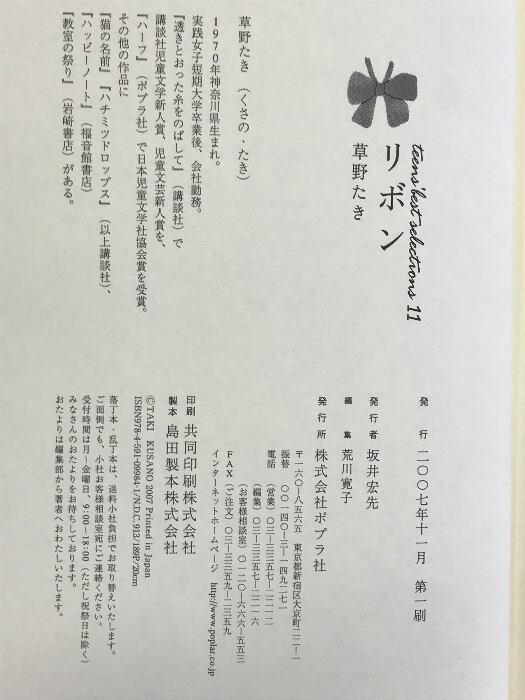 teens' best selections 11
リボン
草野たき
草野たき （くさの・たき）
1970年神奈川県生まれ。
実践女子短期大学卒業後、会社勤務。
『透きとおった糸をのばして』（講談社）で
講談社児童文学新人賞、児童文芸新人賞を、
『ハーフ』（ポプラ社）で日本児童文学者協会賞を受賞。
その他の作品に
『猫の名前』『ハチミツドロップス』（以上講談社）、
『ハッピーノート』（福音館書店）
『教室の祭り』（岩崎書店）がある。
発行 二〇〇七年十一月 第一刷
発行者 坂井宏先
編集 荒川寛子
発行所 株式会社ポプラ社
〒一六〇-八五六五 東京都新宿区大京町二二-一
振替 〇〇一四〇-三-一四九二七一
電話 （営業）〇三-三三五七-二二一二
（編集）〇三-三三五七-二二一六
（お客様相談室）〇一二〇-六六六-五五三
FAX（ご注文）〇三-三三五九-二三五九
インターネットホームページ http://www.poplar.co.jp
印刷 共同印刷株式会社
製本 島田製本株式会社
©TAKI KUSANO 2007 Printed in Japan
ISBN978-4-591-09984-1/N.D.C.913/189P/20cm
落丁本・乱丁本は、送料小社負担でお取り替えいたします。
ご面倒でも、小社お客様相談室宛にご連絡ください。
受付時間は月〜金曜日、9:00〜18:00（ただし祝祭日は除く）
みなさんのおたよりをお待ちしております。
おたよりは編集部から著者へおわたしいたします。